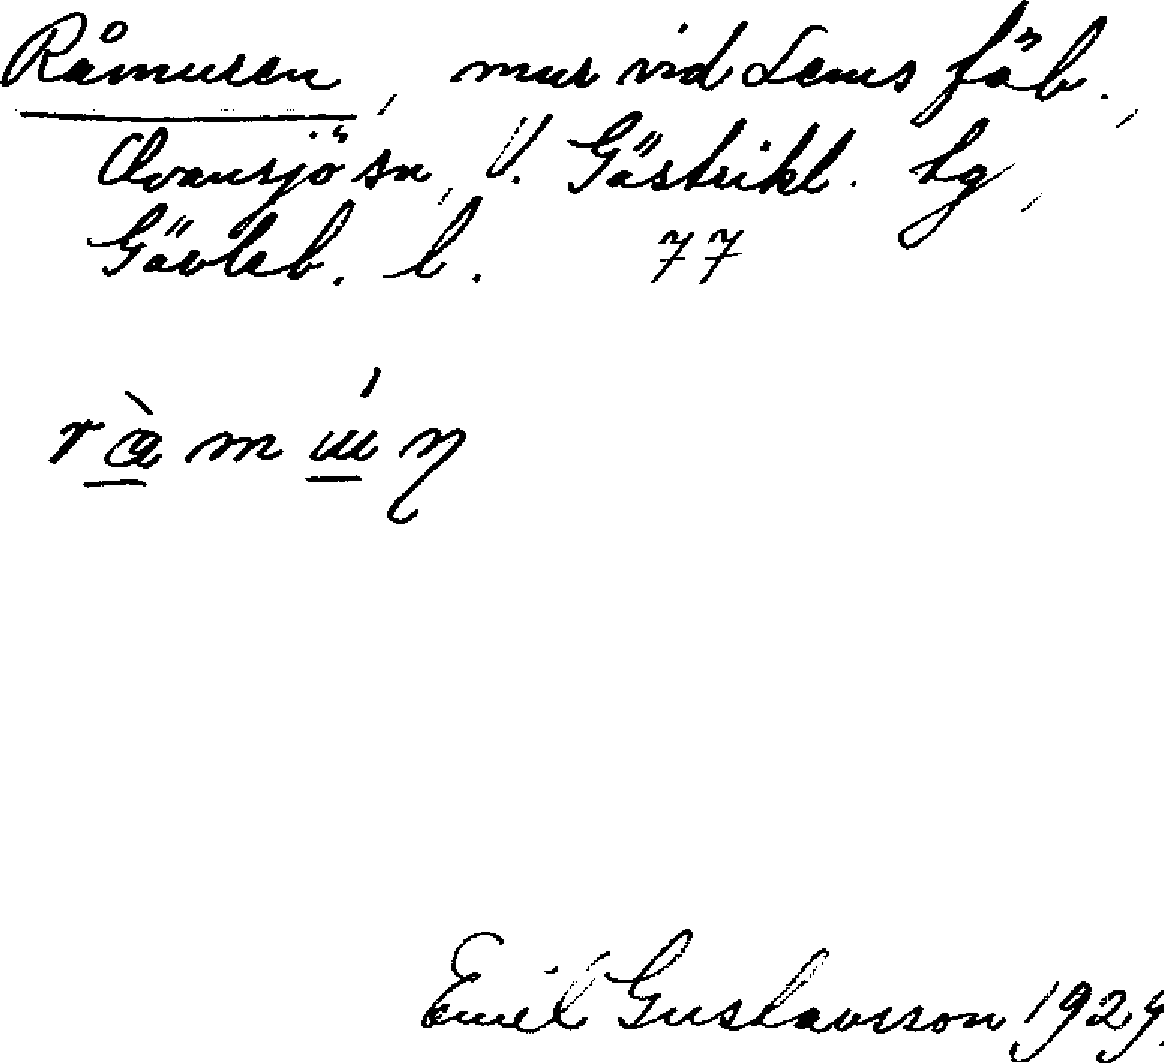 Råmuren, mur vid Lems fäb.,
Ovansjö sn, V. Gästrikl. tg,
Gävleb. l. 77
Emil Gustavsson 1929.